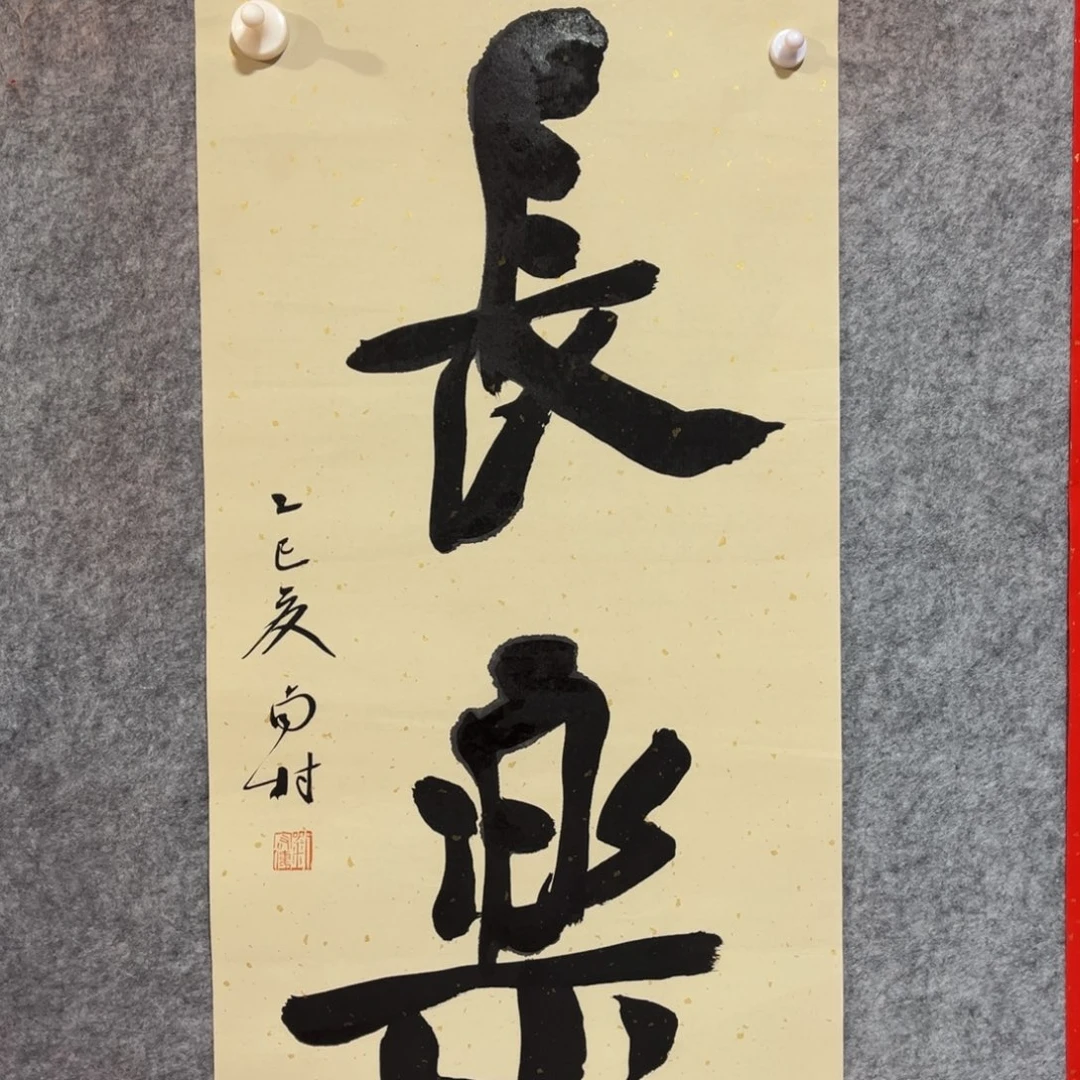 長樂
乙巳夏 村